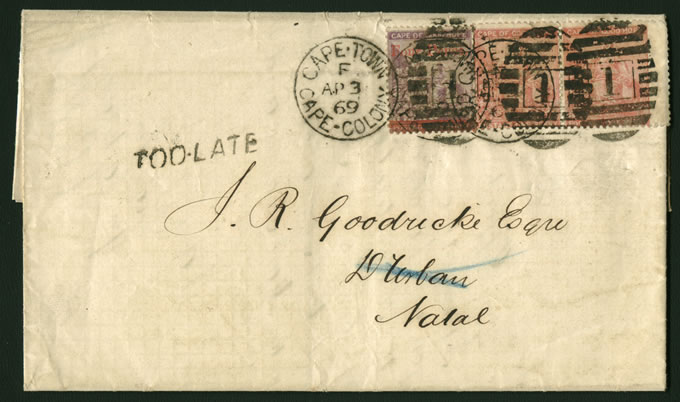 CAPE·TOWN
F
AP 3
69
CAPE-COLONY
CAPE OF GOOD HOPE
CAPE OF GOOD
1
1
1
TOO·LATE
J. R. Goodricke Esqre
D'Urban
Natal